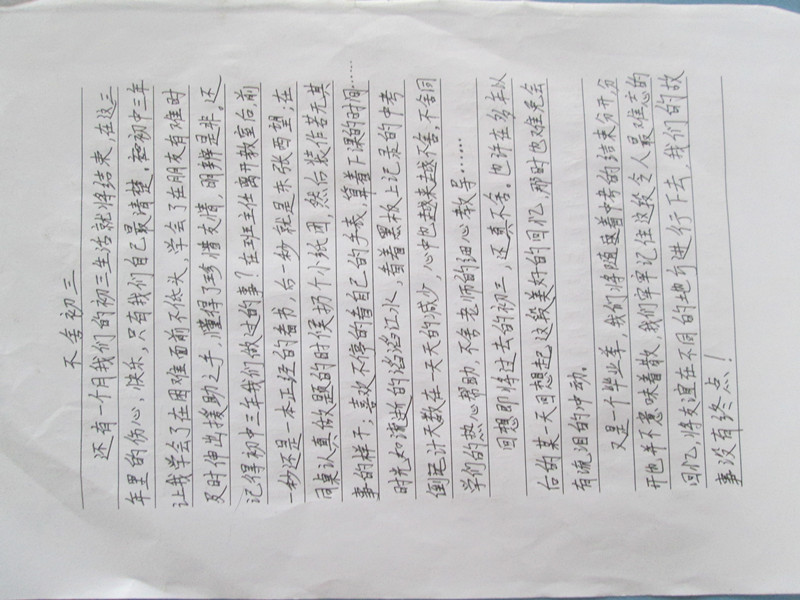 不舍初三
还有一个月我们的初三生活就将结束，在这三
年里的伤心，快乐，只有我们自己最清楚。初中三年
让我学会了在困难面前不低头，学会了在朋友有难时
及时伸出援助之手，懂得了珍惜友情，明辨是非。还
记得初中三年我们做过的事？在班主任离开教室台，前
一秒还是一本正经的看书，台一秒就是东张西望；在
同桌认真做题的时侯扔个小纸团，然后装作若无其
事的样子；喜欢不停的看自己的手表，算着下课的时间……
时光如流逝的滔滔江水，看着黑板上记录的中考
倒记计天数在一天天的减少，心中也越来越不舍，不舍同
学们的热心帮助，不舍老师的细心教导……
回想即将过去的初三，还真不舍。也许在多年以
台的某一天回想起这段美好的回忆，那时也难免会
有流泪的冲动。
又是一个毕业季，我们将随这着中考的结束分开，分
开也并不意味着散，我们牢牢记住这段令人最难忘的
回忆，将友谊在不同的地方进行下去，我们的故
事没有终点！